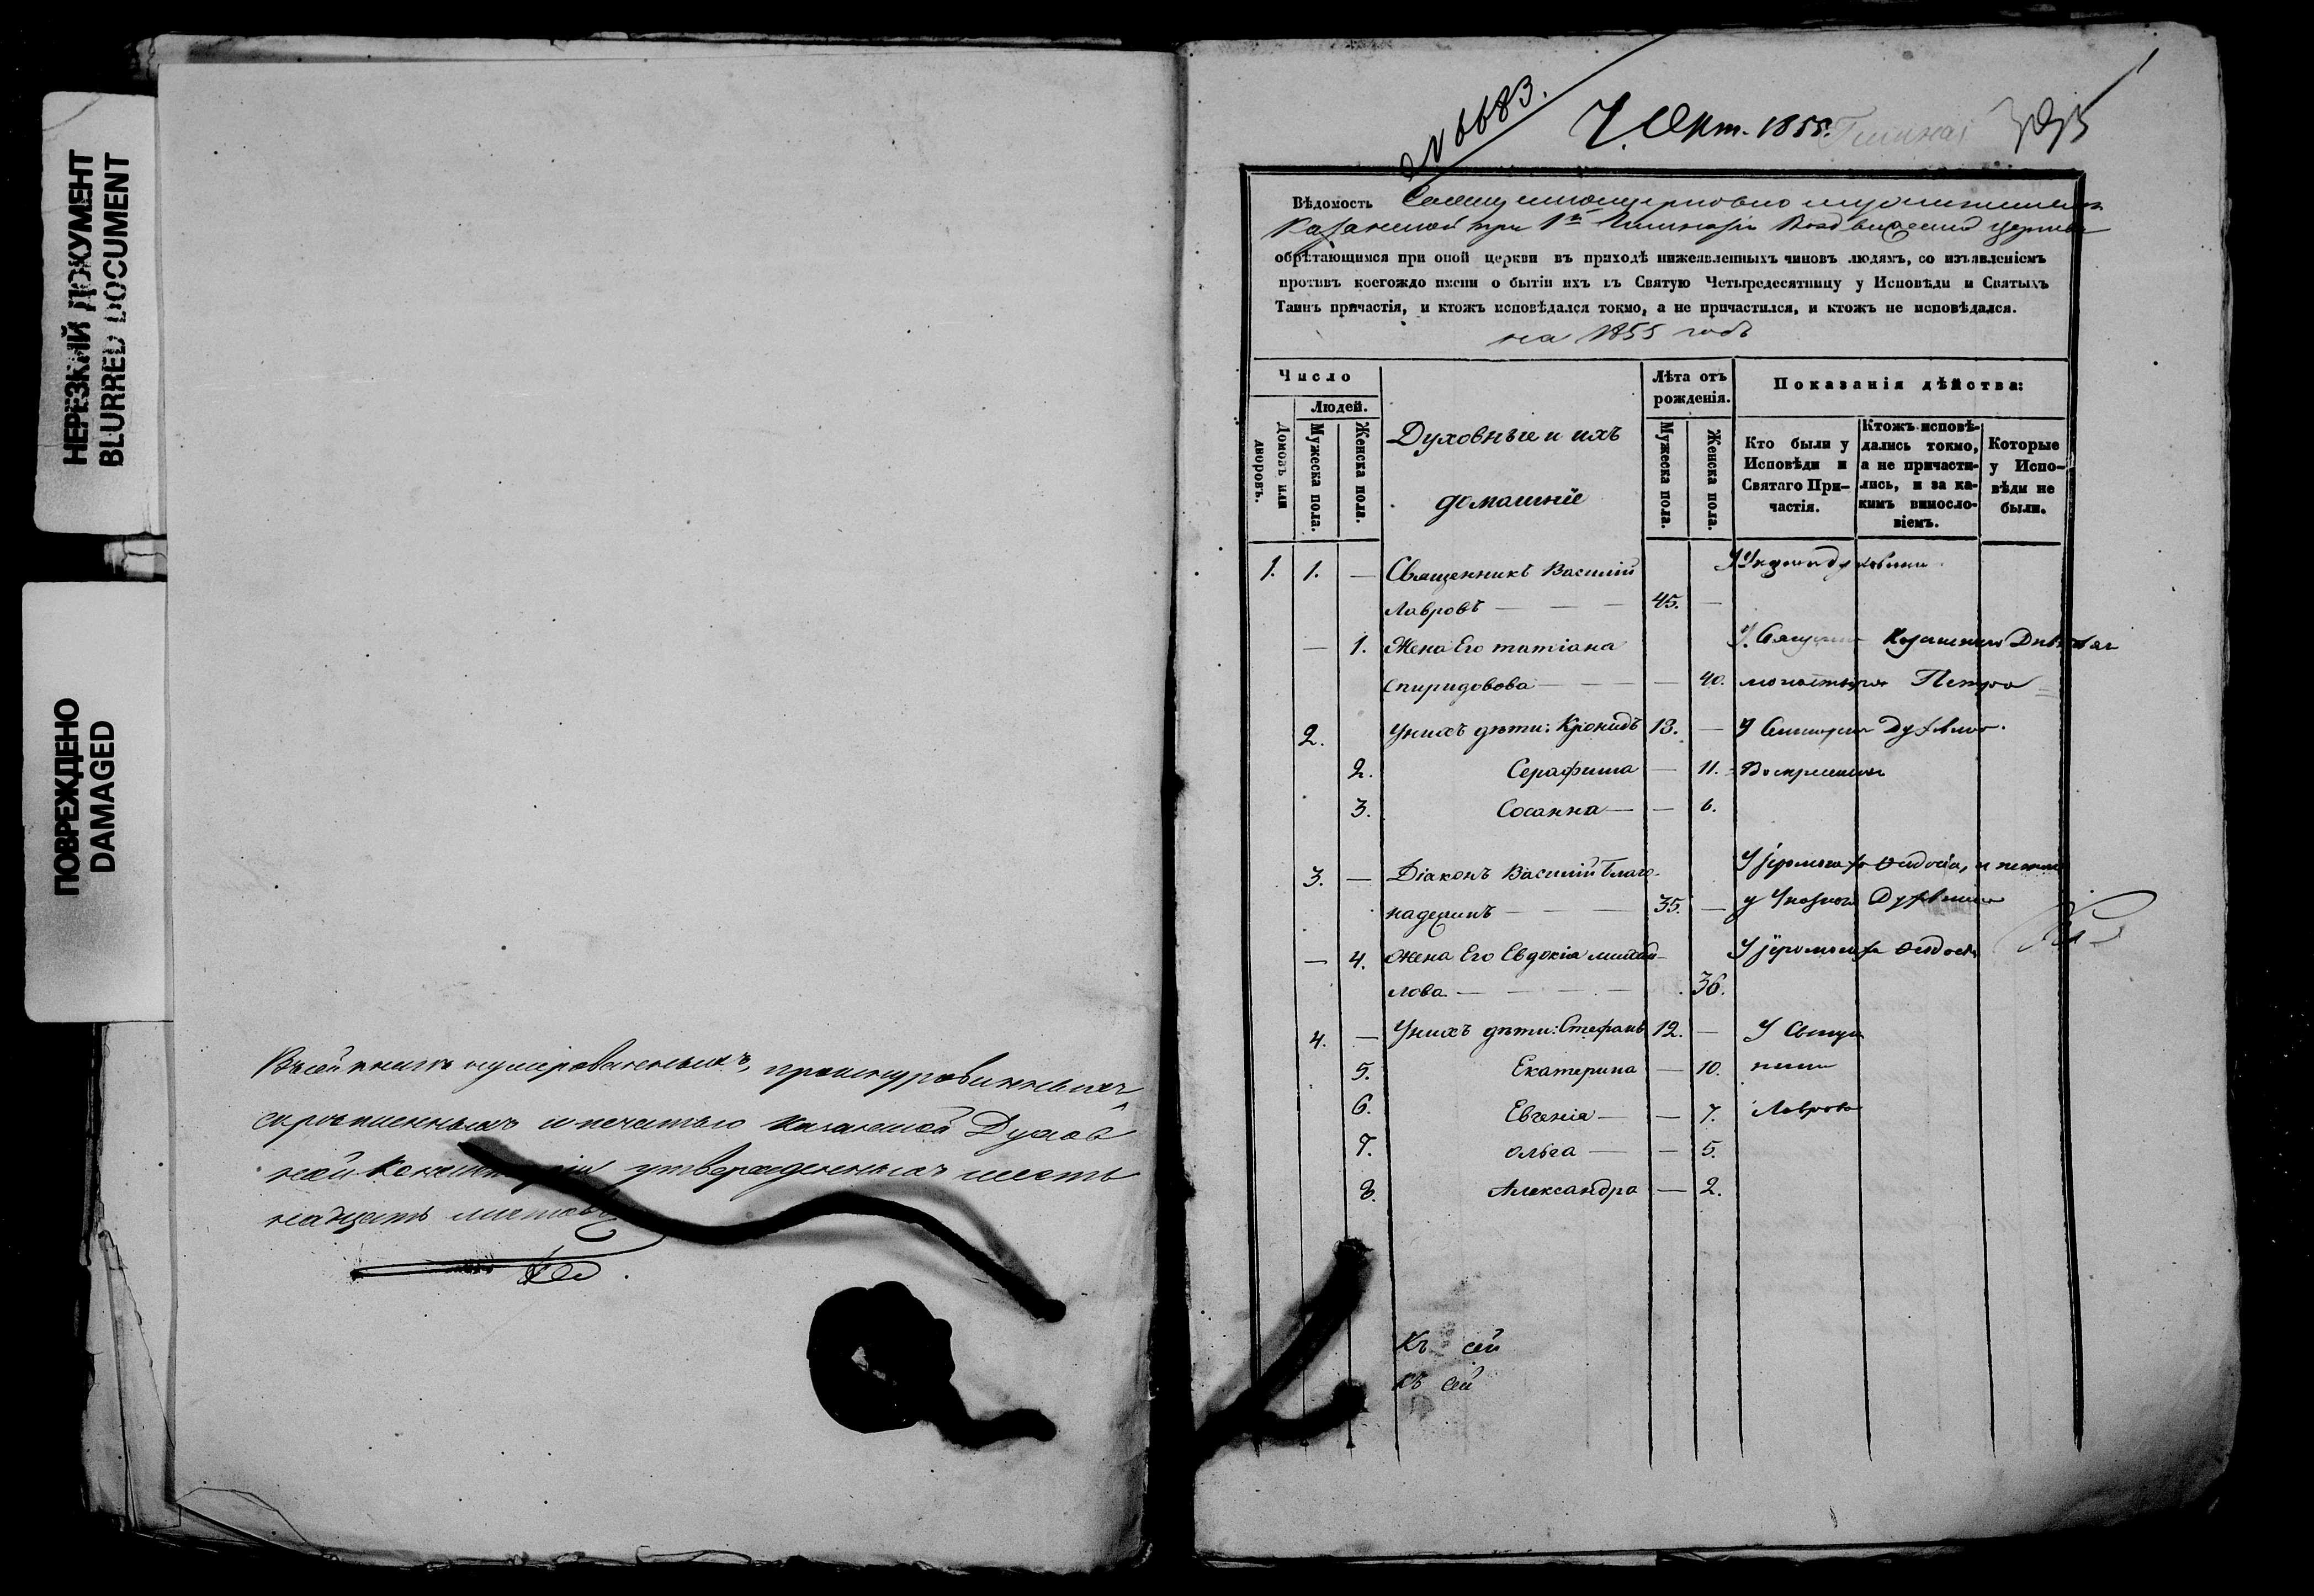 НЕРЕЗКИЙ ДОКУМЕНТ
BLURRED DOCUMENT
ПОВРЕЖДЕНО
DAMAGED
Въ сей книге нумерованныхъ, прошнурованныхъ
скрепленныхъ и печатью Казанской Духов
ной Консисторіи утвержденныхъ шесть
надцать листовъ
№ 6683.
7. Окт. 1855.
Вѣдомость
Казанской при 1й Гимназіи Воздвиженской церкви
обрѣтающимся при оной церкви въ приходѣ нижеявленныхъ чиновъ людямъ, со изъявленіемъ
противъ коегождо имени о бытіи ихъ въ Святую Четыредесятницу у Исповѣди и Святыхъ
Таинъ причастія, и ктожъ исповѣдался токмо, а не причастился, и ктожъ не исповѣдался.
на 1855 годъ
Число
Людей.
Домовъ или дворовъ.
Мужеска пола.
Женска пола.
Духовные и ихъ
домашніе
Лѣта отъ рожденія.
Мужеска пола.
Женска пола.
Показанія дѣйства:
Кто были у Исповѣди и Святаго Причастія.
Ктожъ исповѣдались токмо, а не причастились, и за какимъ винословіемъ.
Которые у Исповѣди не были.
1. 1. — Священникъ Василій
Лавровъ — 45. —
— 1. Жена Его татіана
Спиридовова — — 40. монастыря Петра
2. У нихъ дѣти: Кронидъ 13. —
2. Серафима — 11.
3. Сосанна — — 6.
3. — Діаконъ Василій Благо-
надеждинъ — 35. —
— 4. Жена Его Евдокія михай-
лова — 36.
4. — У нихъ дѣти: Стефанъ 12. — У Свящ
5. Екатерина — 10.
6. Евгенія — — 7. Лаврова
7. ольга — — 5.
8. Александра — 2.
Къ сей
Къ сей